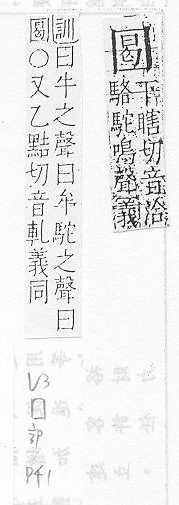 下瞎切音洽
駱駝鳴聲義
訓曰牛之聲曰牟駝之聲曰
○又乙點切音軋義同
V3
囗
部
P41